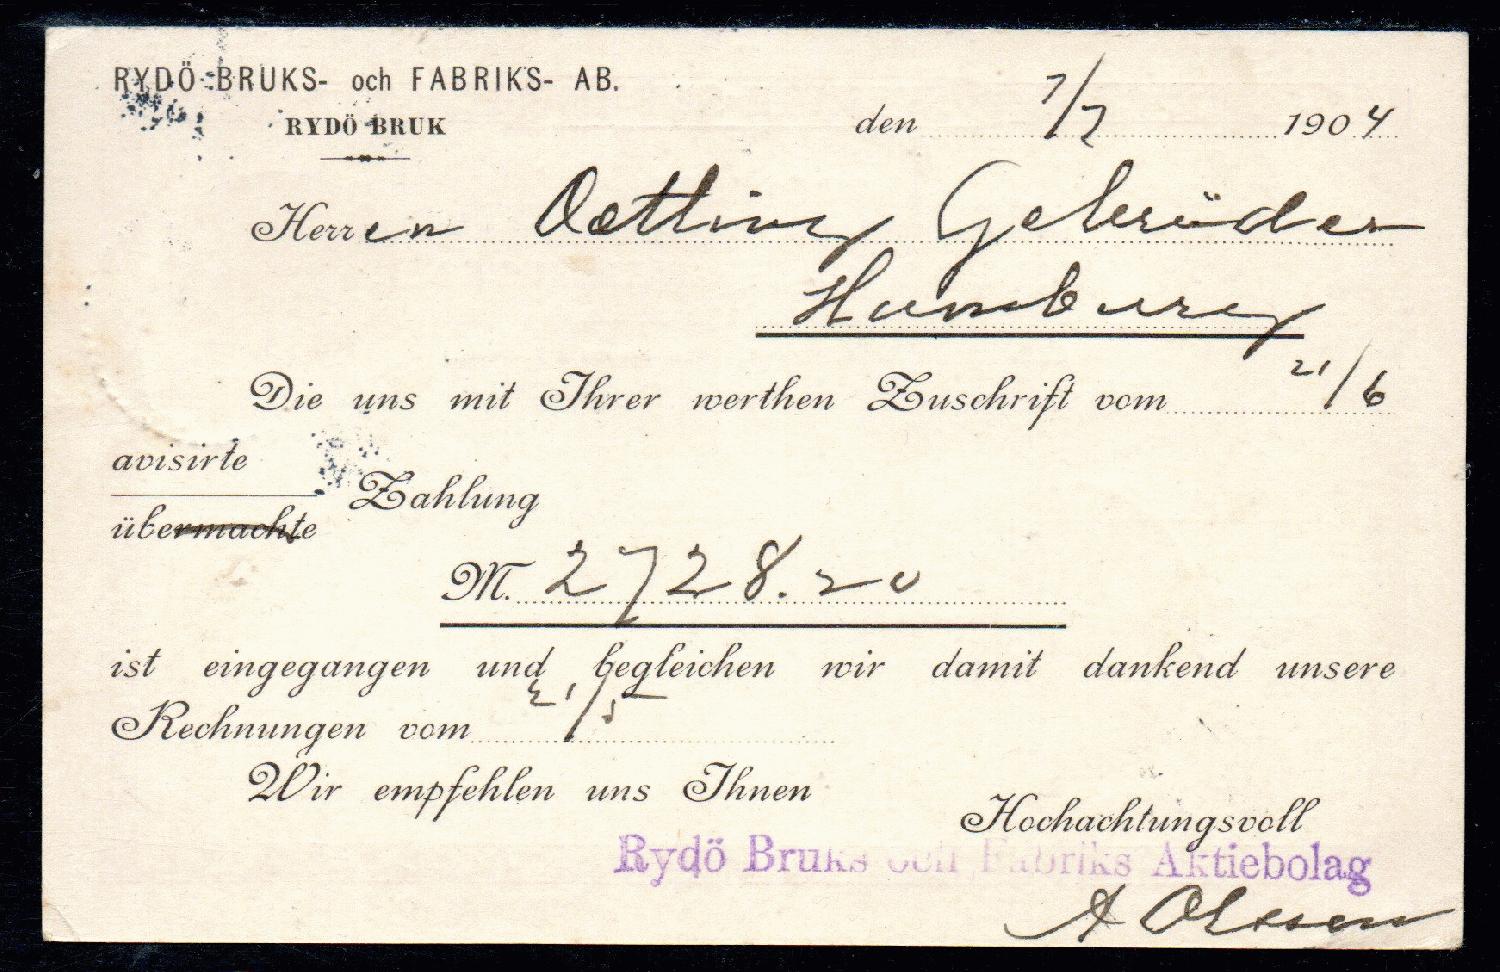 RYDÖ BRUKS- och FABRIKS- AB.
RYDÖ BRUK
den 7/7 1904
Herren Oetling Gebrüder
Hamburg
Die uns mit Ihrer werthen Zuschrift vom 21/6
avisirte
übermachte
Zahlung
M. 2728.20
ist eingegangen und begleichen wir damit dankend unsere
Rechnungen vom 21/5
Wir empfehlen uns Ihnen
Hochachtungsvoll
Rydö Bruks och Fabriks Aktiebolag
A Olsson